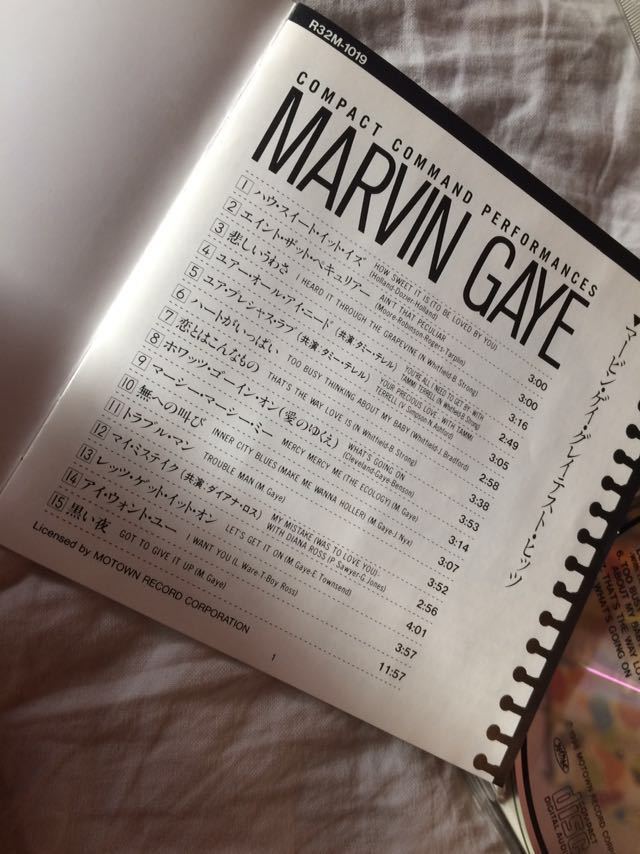 R32M-1019
COMPACT COMMAND PERFORMANCES
MARVIN GAYE
▼マービン・ゲイ・グレイテスト・ヒッツ
1 ハウ・スイート・イット・イズ HOW SWEET IT IS (TO BE LOVED BY YOU) (Holland-Dozier-Holland) 3:00
2 エイント・ザット・ペキュリアー AIN'T THAT PECULIAR (Moore-Robinson-Rogers-Tarplin) 3:00
3 悲しいうわさ I HEARD IT THROUGH THE GRAPEVINE (N Whitfield-B Strong) 3:16
4 ユアー・オール・アイ・ニード (共演・タミー・テレル) YOU'RE ALL I NEED TO GET BY WITH TAMMI TERRELL (N Whitfield-B Strong) 2:49
5 ユア・プレシャス・ラブ (共演・タミー・テレル) YOUR PRECIOUS LOVE, WITH TAMMI TERRELL (V Simpson-N Ashford) 3:05
6 ハートがいっぱい TOO BUSY THINKING ABOUT MY BABY (Whitfield-J Bradford) 2:58
7 恋とはこんなもの THAT'S THE WAY LOVE IS (N Whitfield-B Strong) 3:38
8 ホワッツ・ゴーイン・オン (愛のゆくえ) WHAT'S GOING ON (Cleveland-Gaye-Benson) 3:53
9 マーシー・マーシー・ミー MERCY MERCY ME (THE ECOLOGY) (M Gaye) 3:14
10 無への叫び INNER CITY BLUES (MAKE ME WANNA HOLLER) (M Gaye-J Nyx) 3:07
11 トラブル・マン TROUBLE MAN (M Gaye) 3:52
12 マイ・ミステイク (共演・ダイアナ・ロス) MY MISTAKE (WAS TO LOVE YOU), WITH DIANA ROSS (P Sawyer-G Jones) 2:56
13 レッツ・ゲット・イット・オン LET'S GET IT ON (M Gaye-E Townsend) 4:01
14 アイ・ウォント・ユー I WANT YOU (L Ware-T-Boy Ross) 3:57
15 黒い夜 GOT TO GIVE IT UP (M Gaye) 11:57
Licensed by MOTOWN RECORD CORPORATION
1
6. TOO BUSY
ABOUT MY
THAT'S THE WAY LOVE
WHAT'S GOING ON
MOTOWN RECORD CORPOR
COMPACT
DISC
DIGITAL AUDIO